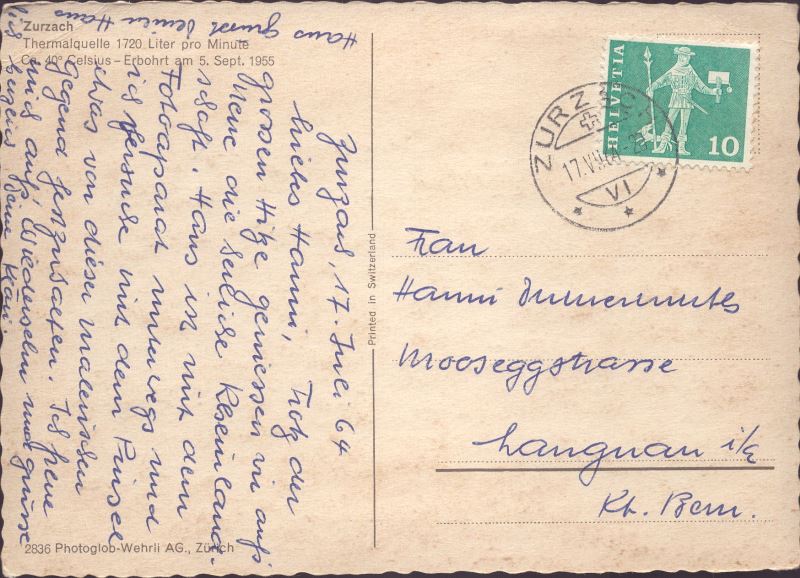 Zurzach
Thermalquelle 1720 Liter pro Minute
Ca. 40° Celsius – Erbohrt am 5. Sept. 1955
Zurzach, 17. Juli 64
Liebes Hanni, Trotz der
grossen Hitze geniessen wir aufs
Neue die seltene Rheinland-
schaft. Hans ist mit dem
Fotoapparat unterwegs und
ich versuche mit dem Pinsel
etwas von dieser malerischen
Gegend festzuhalten. Ich freue
mich aufs Wiedersehn und grüsse
herzlich Deine
Hans grüsst Deinen Hans
Printed in Switzerland
2836 Photoglob-Wehrli AG., Zürich
HELVETIA
10
ZURZACH
17.VII.64
VI
Frau
Hanni
Mooseggstrasse
Langnau i/E
Kt. Bern.